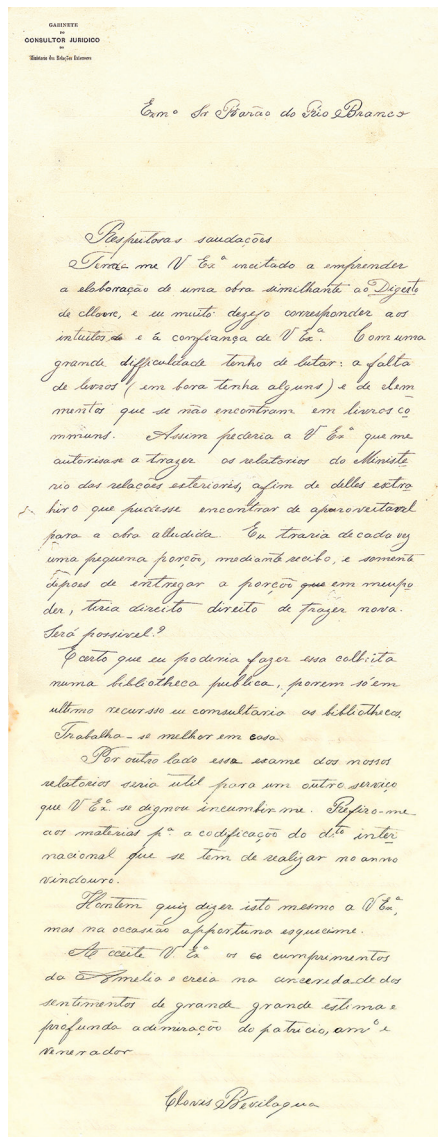 GABINETE
DO
CONSULTOR JURIDICO
DO
Ministerio das Relações Exteriores
Exmº Sr Barão do Rio Branco
Respeitosas saudações
Tem-me V Exª incitado a emprender
a elaboração de uma obra similhante ao Digeste
de Moore, e eu muito dezejo corresponder aos
intuitos e á confiança de V Exª. Com uma
grande difficuldade tenho de lutar: a falta
de livros (em bora tenha alguns) e de elem
mentos que se não encontram em livros co
mmuns. Assim pederia a V Exª que me
autorisase a trazer os relatorios do Ministe
rio das relações exteriores, afim de delles extra
hir o que pudesse encontrar de aparoveitavel
para a obra alludida. Eu traria de cada vez
uma pequena porção, mediante recibo, e somente
depois de entregar a porção que em meu po
der, teria direito direito de trazer nova.
Será possivel?
E certo que eu poderia fazer essa colheita
numa bibliotheca publica, porem só em
ultimo recursso eu comsultaria as bibliothecas.
Trabalha-se melhor em casa
Por outro lado essa exame dos nossos
relatorios seria util para um outro serviço
que V Exª se dignou incumbir me. Refiro-me
aos materias pª a codificação do dtº inter
nacional que se tem de realizar no anno
vindouro.
Hontem quiz dizer isto mesmo a V Exª,
mas na occasião apportuna esqueci me.
Acceite V. Exª os cumprimentos
da Amelia e creia na sinceridade dos
sentimentos de grande grande estima e
profunda adimiração do patricio, amº e
venerador
Clovis Bevilaqua